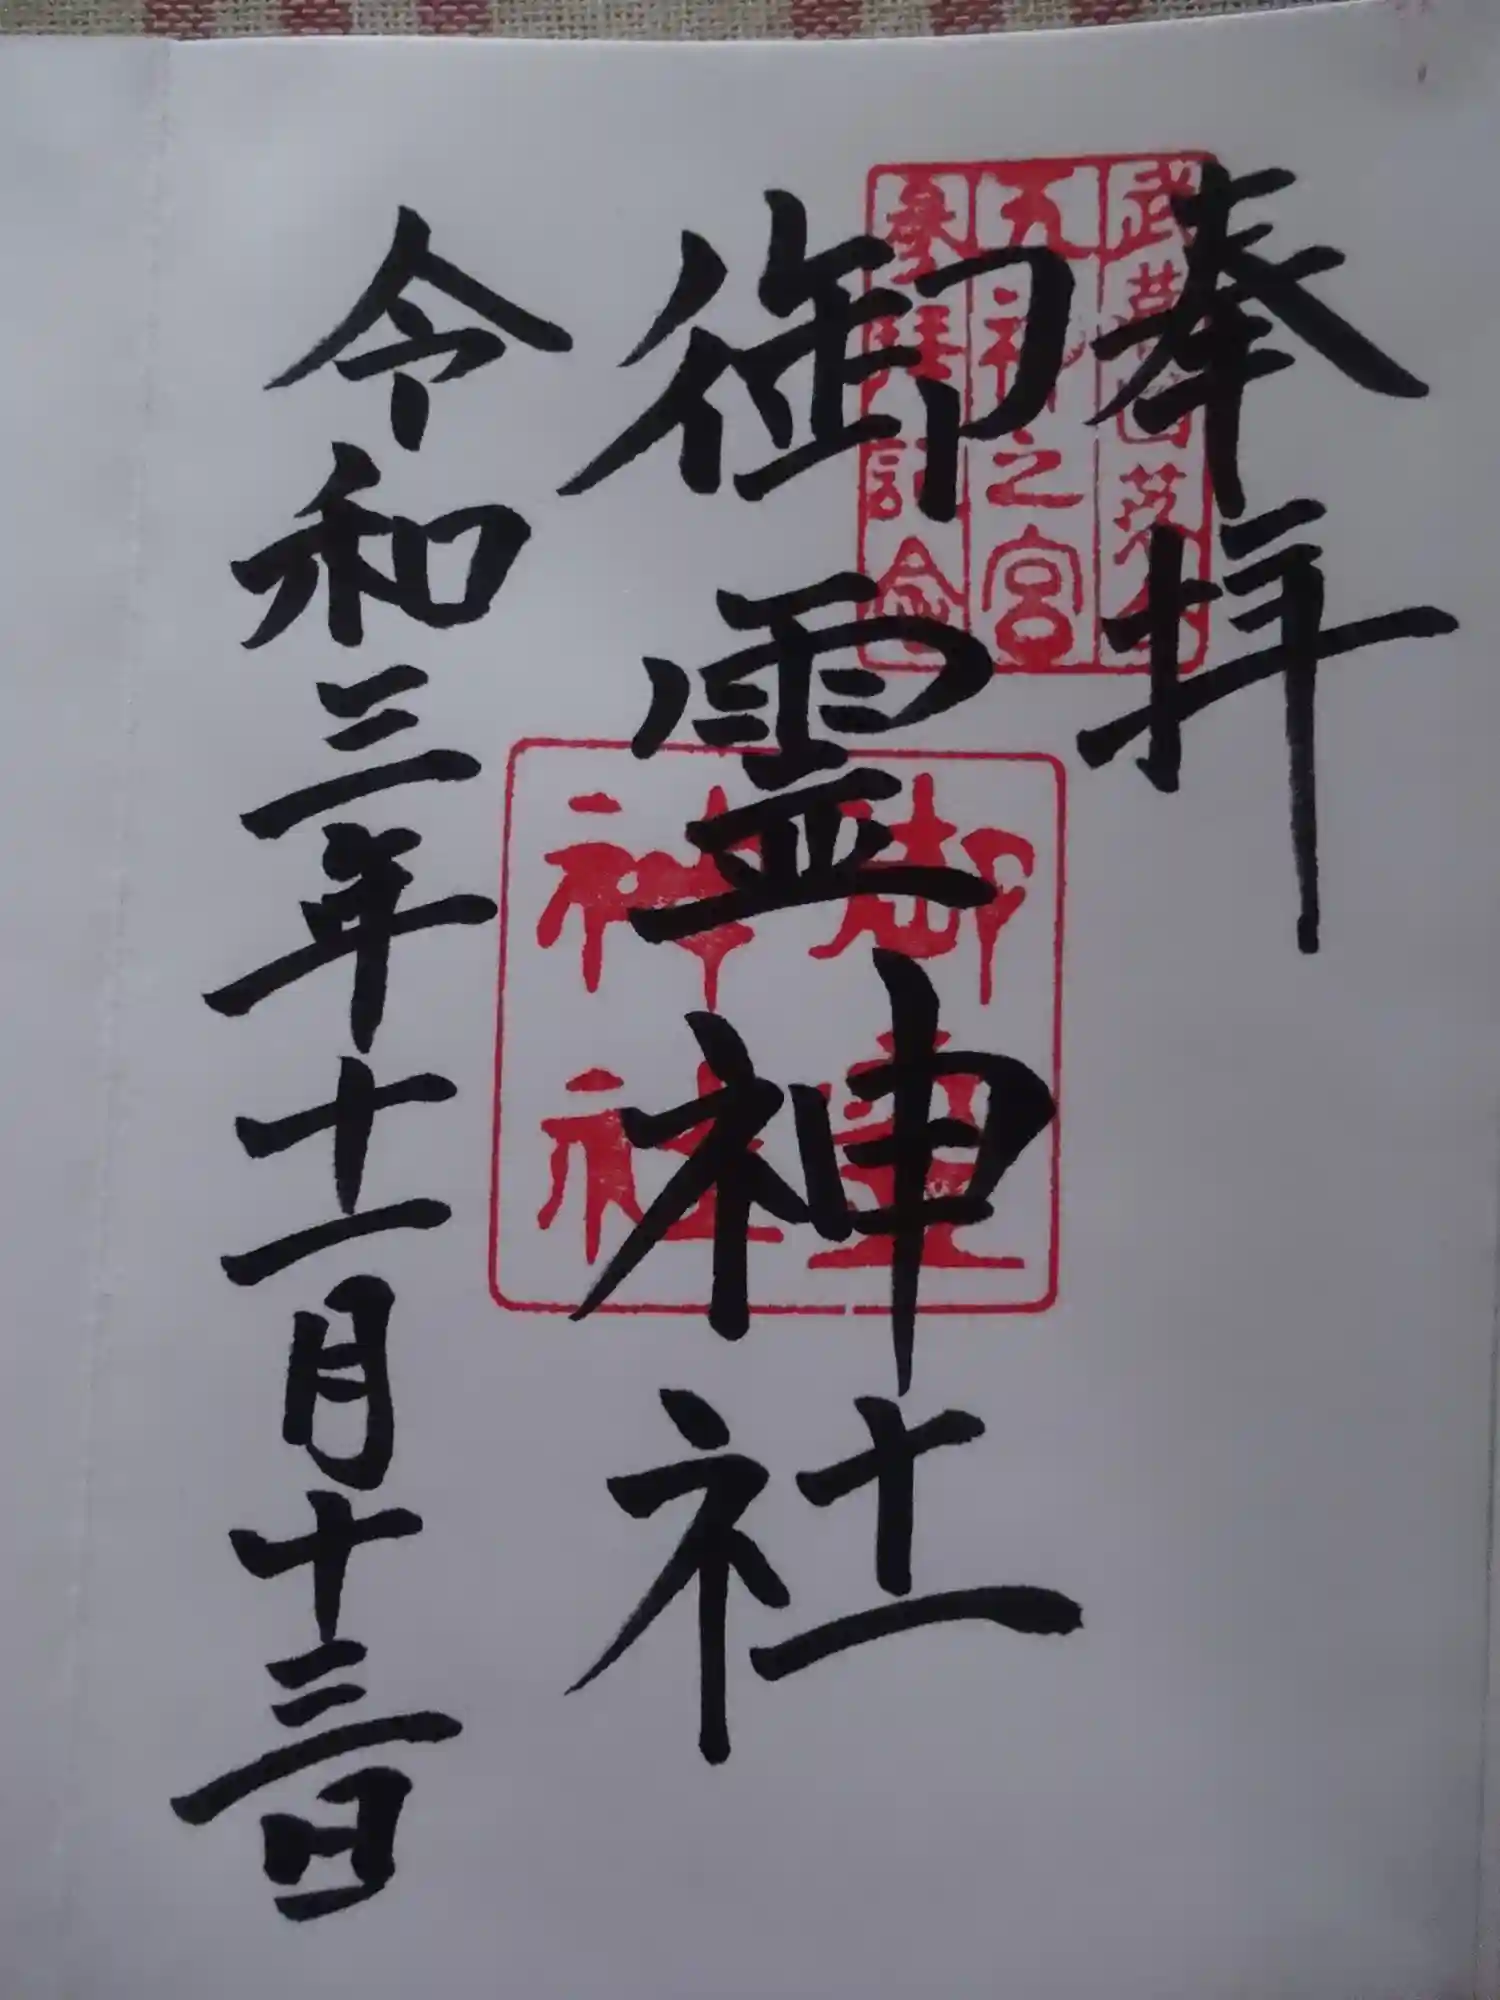 奉拝
武蔵國荏原
五神之宮
参拝記念
御霊神社
御霊
神社
令和三年十一月十三日